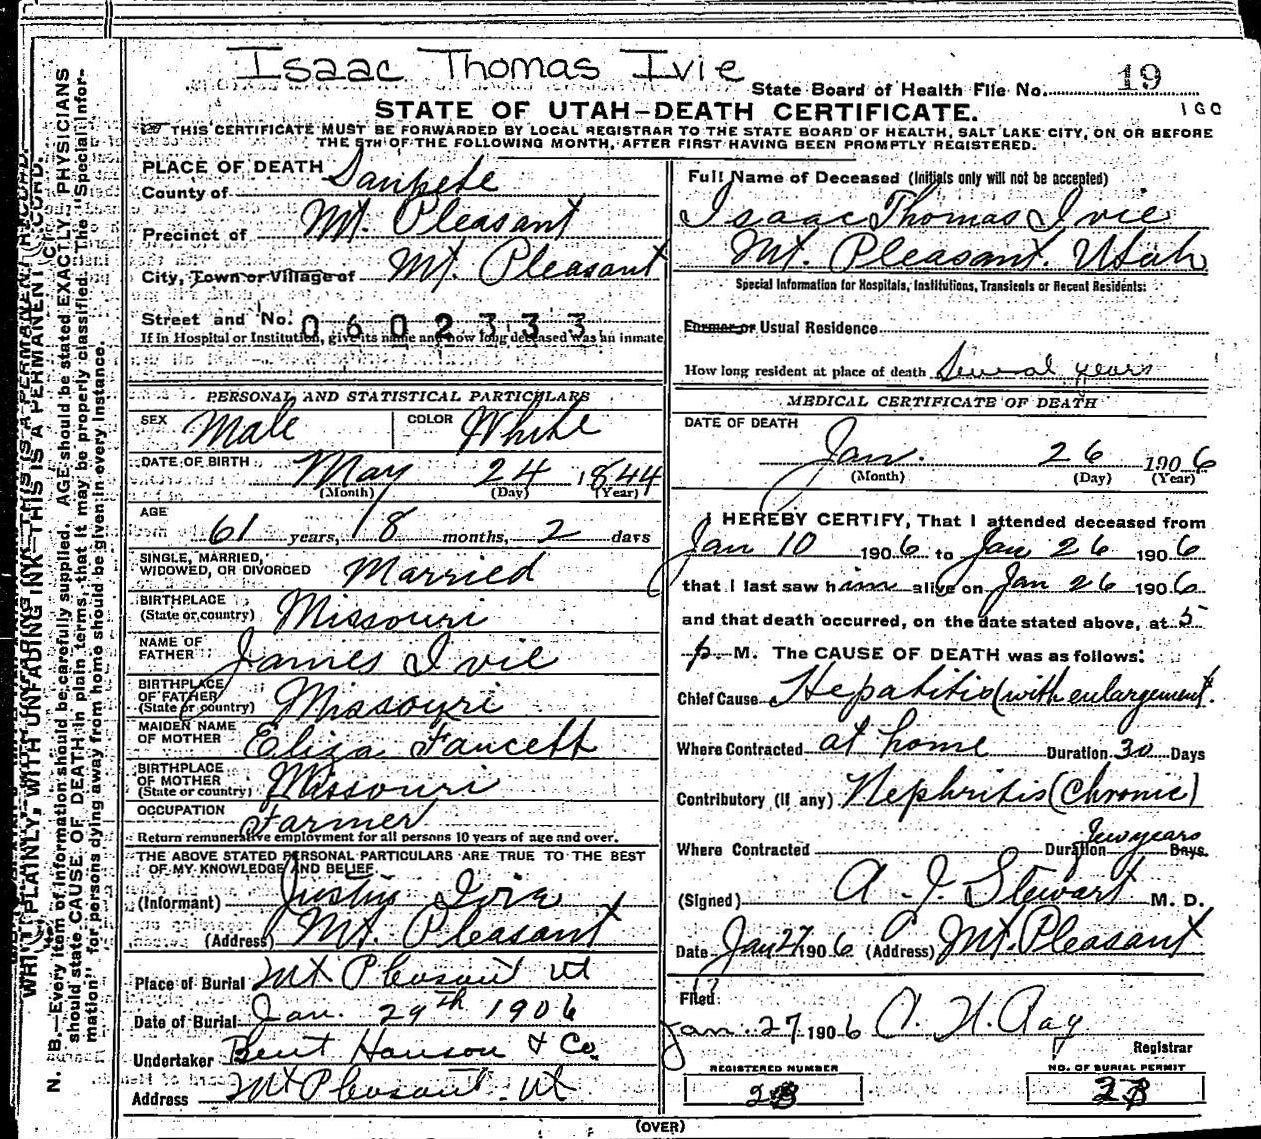 Isaac Thomas Ivie
State Board of Health File No. 19
160
STATE OF UTAH—DEATH CERTIFICATE.
THIS CERTIFICATE MUST BE FORWARDED BY LOCAL REGISTRAR TO THE STATE BOARD OF HEALTH, SALT LAKE CITY, ON OR BEFORE
THE 5TH OF THE FOLLOWING MONTH, AFTER FIRST HAVING BEEN PROMPTLY REGISTERED.
PLACE OF DEATH
County of Sanpete
Precinct of Mt. Pleasant
City, Town or Village of Mt. Pleasant
Street and No. 0602333
If in Hospital or Institution, give its name and how long deceased was an inmate
PERSONAL AND STATISTICAL PARTICULARS
SEX Male COLOR White
DATE OF BIRTH May 24 1844
(Month) (Day) (Year)
AGE
61 years, 8 months, 2 days
SINGLE, MARRIED,
WIDOWED, OR DIVORCED Married
BIRTHPLACE
(State or country) Missouri
NAME OF
FATHER James Ivie
BIRTHPLACE
OF FATHER
(State or country) Missouri
MAIDEN NAME
OF MOTHER Eliza Faucett
BIRTHPLACE
OF MOTHER
(State or country) Missouri
OCCUPATION Farmer
Return remunerative employment for all persons 10 years of age and over.
THE ABOVE STATED PERSONAL PARTICULARS ARE TRUE TO THE BEST
OF MY KNOWLEDGE AND BELIEF
(Informant) Justus Ivie
(Address) Mt. Pleasant
Place of Burial Mt Pleasant Ut
Date of Burial Jan. 29th 1906
Undertaker Bent Hanson & Co.
Address Mt Pleasant Ut
Full Name of Deceased (Initials only will not be accepted)
Isaac Thomas Ivie
Mt. Pleasant. Utah
Special Information for Hospitals, Institutions, Transients or Recent Residents:
Former or Usual Residence
How long resident at place of death Several years
MEDICAL CERTIFICATE OF DEATH
DATE OF DEATH
Jan. 26 1906
(Month) (Day) (Year)
I HEREBY CERTIFY, That I attended deceased from
Jan 10 1906 to Jan 26 1906
that I last saw him alive on Jan 26 1906
and that death occurred, on the date stated above, at 5
p. M. The CAUSE OF DEATH was as follows:
Chief Cause Hepatitis (with enlargement).
Where Contracted at home Duration 30 Days
Contributory (if any) Nephritis (Chronic)
Where Contracted Duration few years Days.
(Signed) A. J. Stewart M. D.
Date Jan 27 1906 (Address) Mt. Pleasant
Filed
Jan. 27 1906 A. H. Day
Registrar
REGISTERED NUMBER NO. OF BURIAL PERMIT
(OVER)
WRITE PLAINLY, WITH UNFADING INK—THIS IS A PERMANENT RECORD.
N. B.—Every item of information should be carefully supplied. AGE should be stated EXACTLY. PHYSICIANS
should state CAUSE OF DEATH in plain terms, that it may be properly classified. The "Special Infor-
mation" for persons dying away from home should be given in every instance.